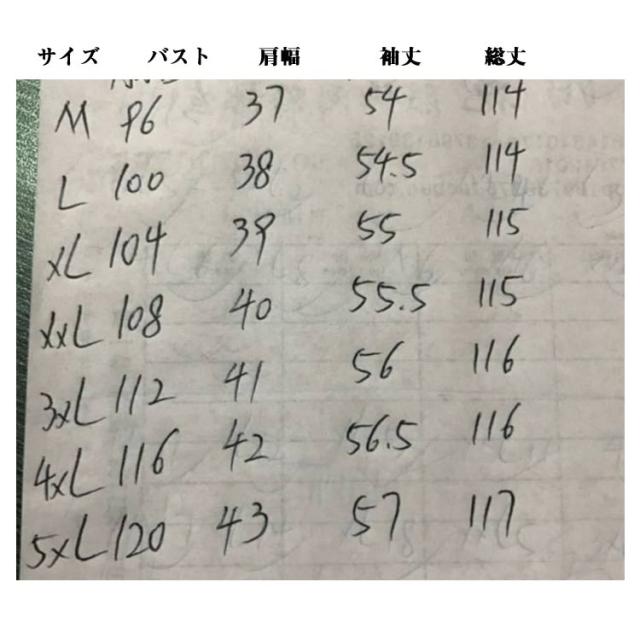 サイズ バスト 肩幅 袖丈 総丈
M 96 37 54 114
L 100 38 54.5 114
XL 104 39 55 115
XXL 108 40 55.5 115
3XL 112 41 56 116
4XL 116 42 56.5 116
5XL 120 43 57 117